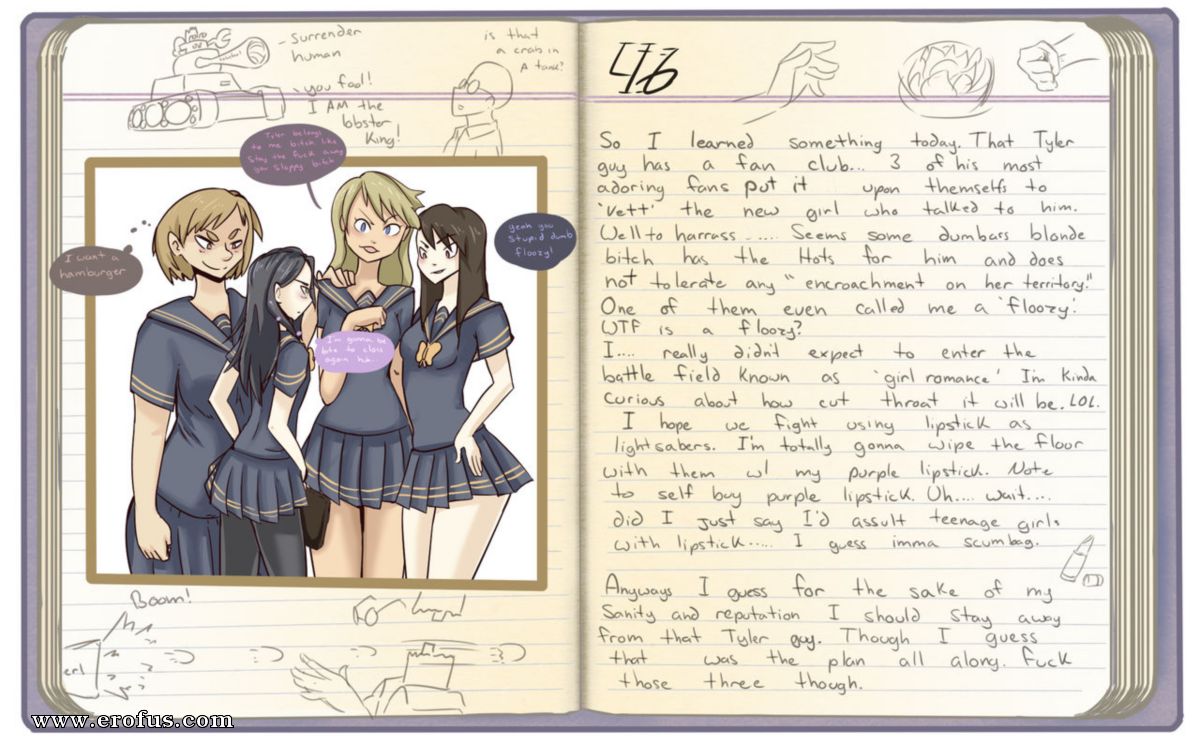 - Surrender
human
you fool!
I AM the
lobster
King!
is that
a crab in
A tank?
Tyler belongs
to me bitch like
Stay the fuck away
you Slappy bitch
I want a
hamburger
yeah you
Stupid dumb
floozy!
I'm gonna be
late to class
again huh...
Boom!
erl
So I learned something today. That Tyler
guy has a fan club... 3 of his most
adoring fans put it upon themselfs to
'vett' the new girl who talked to him.
Well to harrass ...... Seems some dumbass blonde
bitch has the Hots for him and does
not tolerate any "encroachment on her territory."
One of them even called me a 'floozy'.
WTF is a floozy?
I.... really didn't expect to enter the
battle field known as 'girl romance' I'm kinda
curious about how cut throat it will be. LOL.
I hope we fight using lipstick as
lightsabers. I'm totally gonna wipe the floor
with them w/ my purple lipstick. Note
to self buy purple lipstick. Uh.... wait....
did I just say I'd assult teenage girls
with lipstick..... I guess imma scumbag.
Anyways I guess for the sake of my
Sanity and reputation I should stay away
from that Tyler guy. Though I guess
that was the plan all along. Fuck
those three though.
www.erofus.com